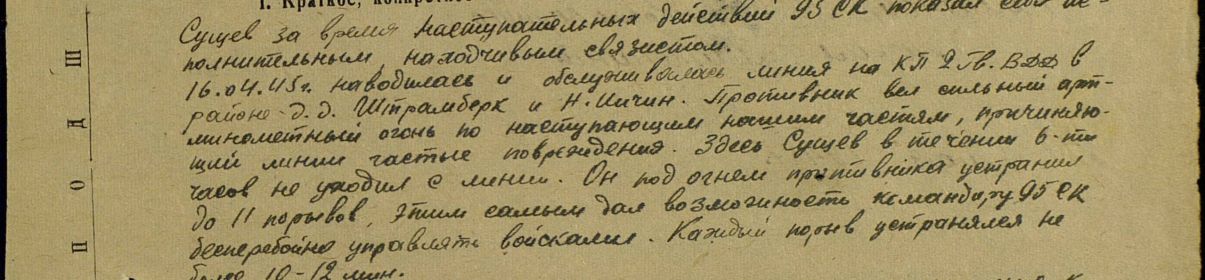 1. Краткое, конкретно
Сущев за время наступательных действий 95 СК показал себя ис-
полнительным, находчивым связистом.
16.04.45г. наводилась и обслуживалась линия на КП 2 Гв. ВДД в
районе д.д. Штрамберк и Н. Ичин. Противник вел сильный арт-
минометный огонь по наступающим нашим частям, причиняю-
щий линии частые повреждения. Здесь Сущев в течении 6-ти
часов не уходил с линии. Он под огнем противника устранил
до 11 порывов, этим самым дал возможность командиру 95 СК
бесперебойно управлять войсками. Каждый порыв устранялся не
более 10-12 мин.
П О Д Ш